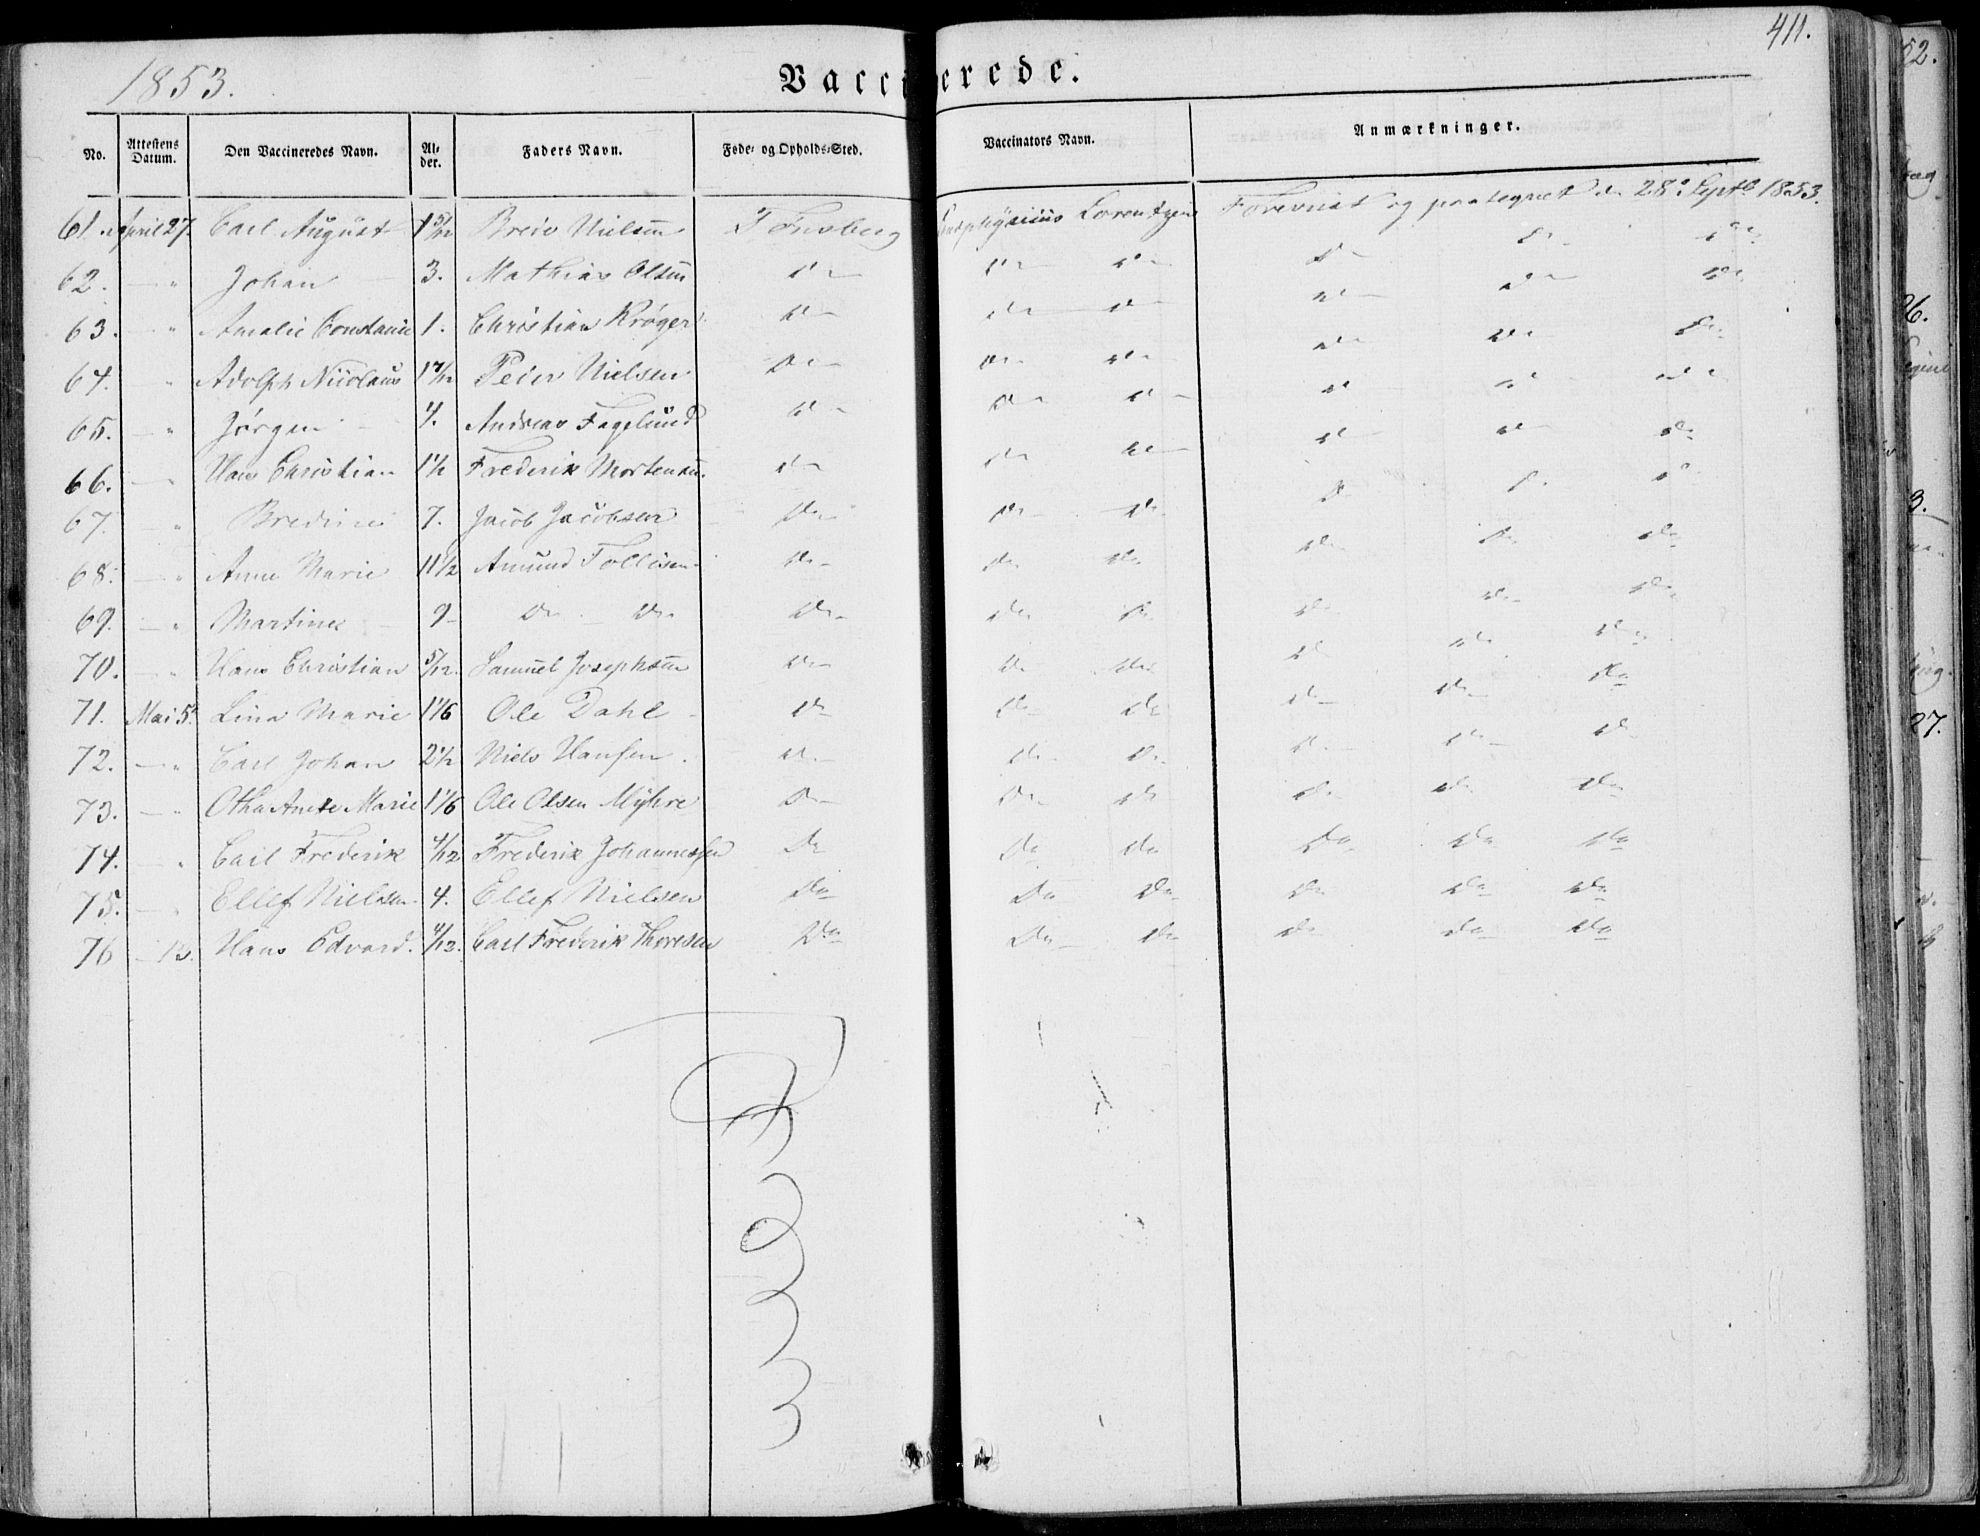 1853. Vaccinerede. 411.
No. Attestens Datum. Den Vaccineredes Navn. Alder. Faders Navn. Føde- og Opholds-Sted. Vaccinators Navn. Anmærkninger.
61. April 27. Carl August 1 5/12 Nielsen Tønsberg Lorentzen Forevist og paategnet d. 28de Septbr 1853.
62. — " Johan 3. Mathias Olsen Do Do Do Do Do Do
63. — " Amalie Constance 1. Christian Krøger Do Do Do Do Do Do
64. " Adolph Nicolaus Peder Nielsen Do Do Do Do Do Do
65. — " Jørgen 4. Andreas Fagelund Do Do Do Do Do Do
66. — " Hans Christian 1 1/2 Frederik Mortensen. Do Do Do Do Do Do
67. " Bredine 7. Jacob Jacobsen Do Do Do Do Do Do
68. — " Anne Marie 11 1/2 Amund Tollisen Do Do Do Do Do Do
69. — " Martine 9 Do Do Do Do Do Do Do Do
70. — " Hans Christian 5/12. Samuel Josephsen Do Do Do Do Do Do
71. Mai 5. Lina Marie 1 1/6 Ole Dahl Do Do Do Do Do Do
72. — " Carl Johan 2 1/2 Niels Hansen. Do Do Do Do Do Do
73. — " Otha Anete Marie 1 1/6 Ole Olsen Myhre Do Do Do Do Do Do
74. — " Carl Frederik 4/12 Frederik Johannessen Do Do Do Do Do Do
75. — " Ellef Nielsen. 4. Ellef Nielsen Do Do Do Do Do Do
76 — 13. Hans Edvard. 4/12. Carl Frederik Thoresen Do Do Do Do Do Do